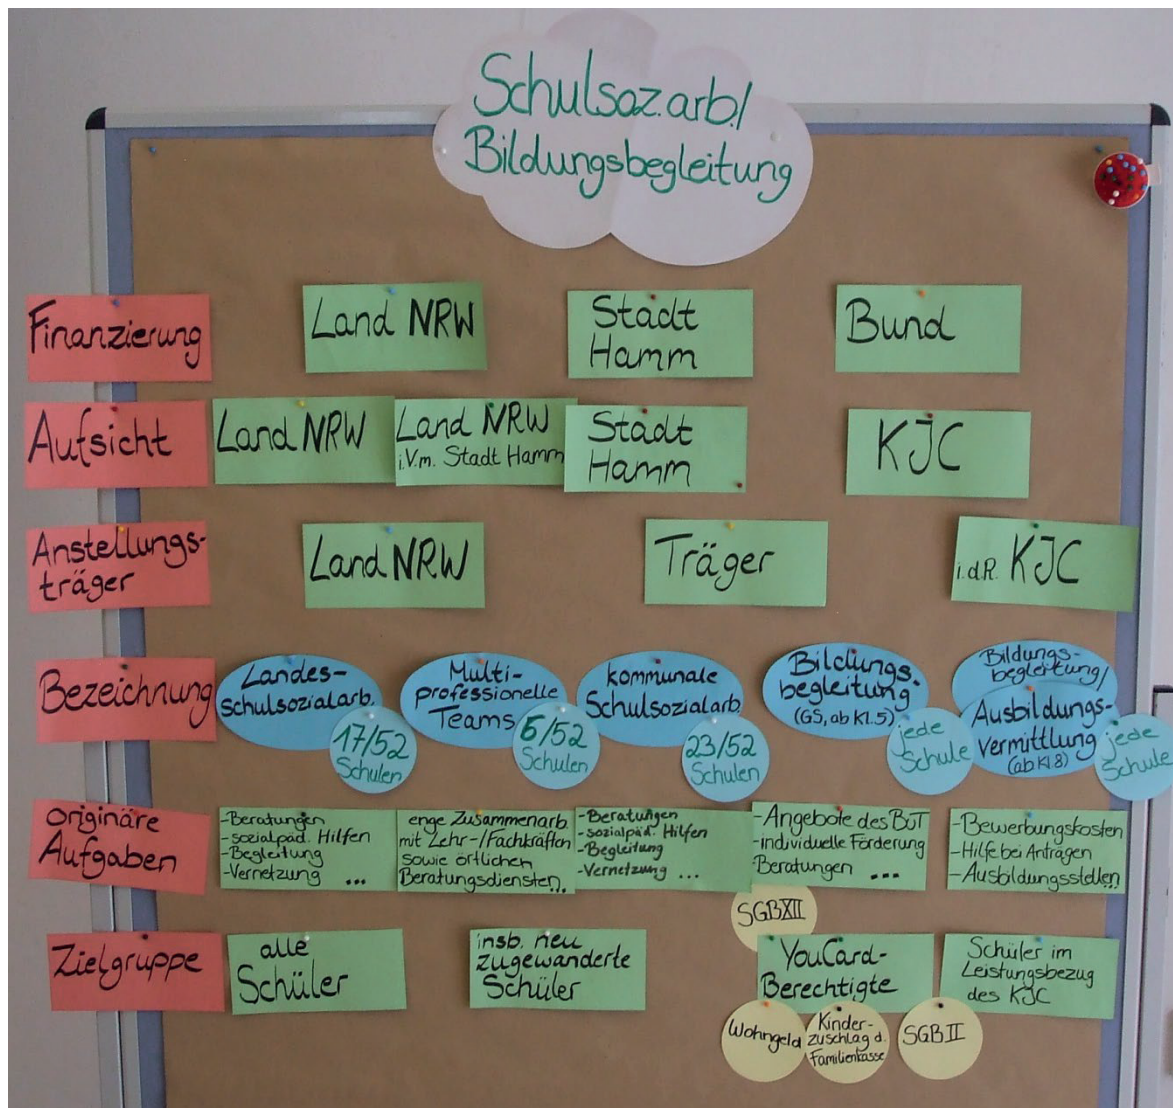 Schulsoz.arb./
Bildungsbegleitung
Finanzierung
Land NRW
Stadt
Hamm
Bund
Aufsicht
Land NRW
Land NRW
i.V.m. Stadt Hamm
Stadt
Hamm
KJC
Anstellungs-
träger
Land NRW
Träger
i.d.R. KJC
Bezeichnung
Landes-
schulsozialarb.
17/52
Schulen
Multi-
professionelle
Teams
6/52
Schulen
kommunale
Schulsozialarb.
23/52
Schulen
Bildungs-
begleitung
(GS, ab Kl.5)
jede
Schule
Bildungs-
begleitung/
Ausbildungs-
vermittlung
(ab Kl 8)
jede
Schule
originäre
Aufgaben
-Beratungen
-sozialpäd. Hilfen
-Begleitung
-Vernetzung ...
enge Zusammenarb.
mit Lehr-/Fachkräften
sowie örtlichen
Beratungsdiensten...
-Beratungen
-sozialpäd. Hilfen
-Begleitung
-Vernetzung ...
-Angebote des BuT
-individuelle Förderung
Beratungen ...
-Bewerbungskosten
-Hilfe bei Anträgen
-Ausbildungsstellen...
Zielgruppe
alle
Schüler
insb. neu
zugewanderte
Schüler
SGB XII
YouCard-
Berechtigte
Wohngeld
Kinder-
zuschlag d.
Familienkasse
SGB II
Schüler im
Leistungsbezug
des KJC